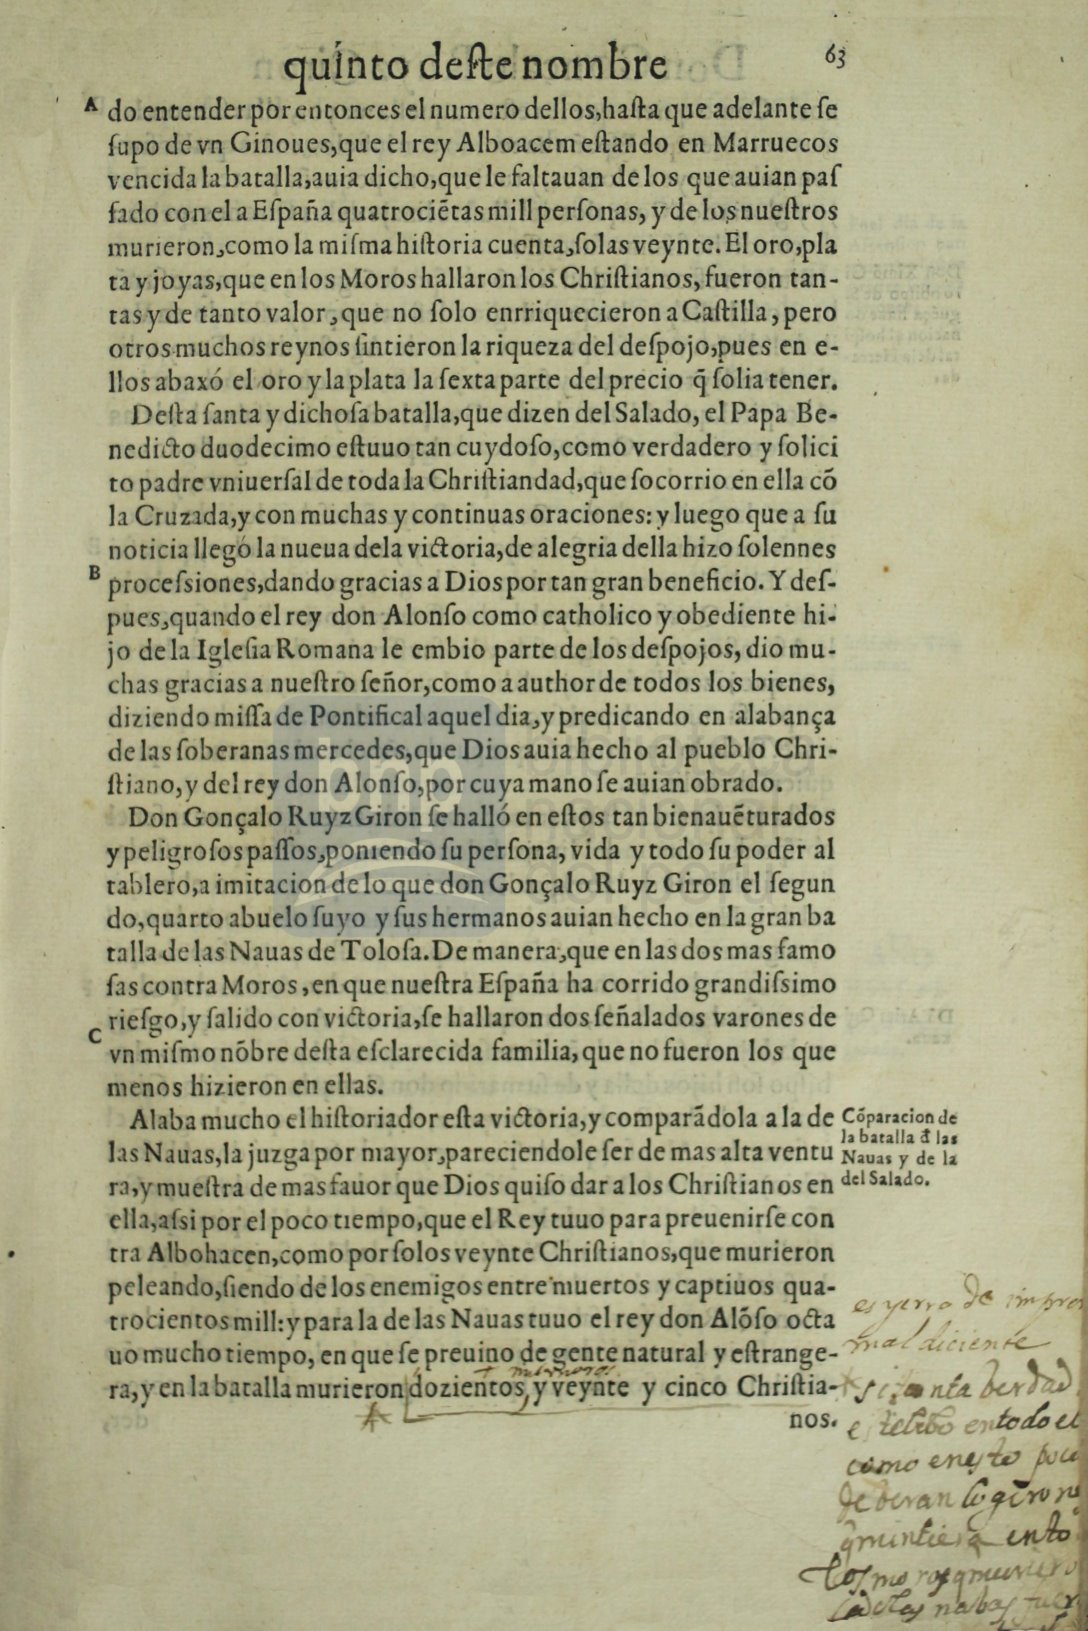 quinto deste nombre 63
A do entender por entonces el numero dellos, hasta que adelante se
supo de vn Ginoues, que el rey Alboacem estando en Marruecos
vencida la batalla, auia dicho, que le faltauan de los que auian pas
sado con el a España quatrociẽtas mill personas, y de los nuestros
murieron, como la misma historia cuenta, solas veynte. El oro, pla
ta y joyas, que en los Moros hallaron los Christianos, fueron tan-
tas y de tanto valor, que no solo enrriquecieron a Castilla, pero
otros muchos reynos sintieron la riqueza del despojo, pues en e-
llos abaxó el oro y la plata la sexta parte del precio q̃ solia tener.
Desta santa y dichosa batalla, que dizen del Salado, el Papa Be-
nedicto duodecimo estuuo tan cuydoso, como verdadero y solici
to padre vniuersal de toda la Christiandad, que socorrio en ella cõ
la Cruzada, y con muchas y continuas oraciones: y luego que a su
noticia llegó la nueua dela victoria, de alegria della hizo solennes
B processiones, dando gracias a Dios por tan gran beneficio. Y des-
pues, quando el rey don Alonso como catholico y obediente hi-
jo de la Iglesia Romana le embio parte de los despojos, dio mu-
chas gracias a nuestro señor, como a author de todos los bienes,
diziendo missa de Pontifical aquel dia, y predicando en alabança
de las soberanas mercedes, que Dios auia hecho al pueblo Chri-
stiano, y del rey don Alonso, por cuya mano se auian obrado.
Don Gonçalo Ruyz Giron se halló en estos tan bienauẽturados
y peligrosos passos, poniendo su persona, vida y todo su poder al
tablero, a imitacion de lo que don Gonçalo Ruyz Giron el segun
do, quarto abuelo suyo y sus hermanos auian hecho en la gran ba
talla de las Nauas de Tolosa. De manera, que en las dos mas famo
sas contra Moros, en que nuestra España ha corrido grandissimo
C riesgo, y salido con victoria, se hallaron dos señalados varones de
vn mismo nõbre desta esclarecida familia, que no fueron los que
menos hizieron en ellas.
Alaba mucho el historiador esta victoria, y comparãdola a la de
las Nauas, la juzga por mayor, pareciendole ser de mas alta ventu
ra, y muestra de mas fauor que Dios quiso dar a los Christianos en
ella, assi por el poco tiempo, que el Rey tuuo para preuenirse con
tra Albohacen, como por solos veynte Christianos, que murieron
peleando, siendo de los enemigos entre muertos y captiuos qua-
trocientos mill: y para la de las Nauas tuuo el rey don Alõso octa
uo mucho tiempo, en que se preuino de gente natural y estrange-
ra, y en la batalla murieron dozientos, y veynte y cinco Christia-
nos.
Cõparacion de
la batalla đ las
Nauas y de la
del Salado.
es yerro de
mal diciente
si tanta berdad
en todo el
como en esto poco
deberan
en to
los moros
nabas